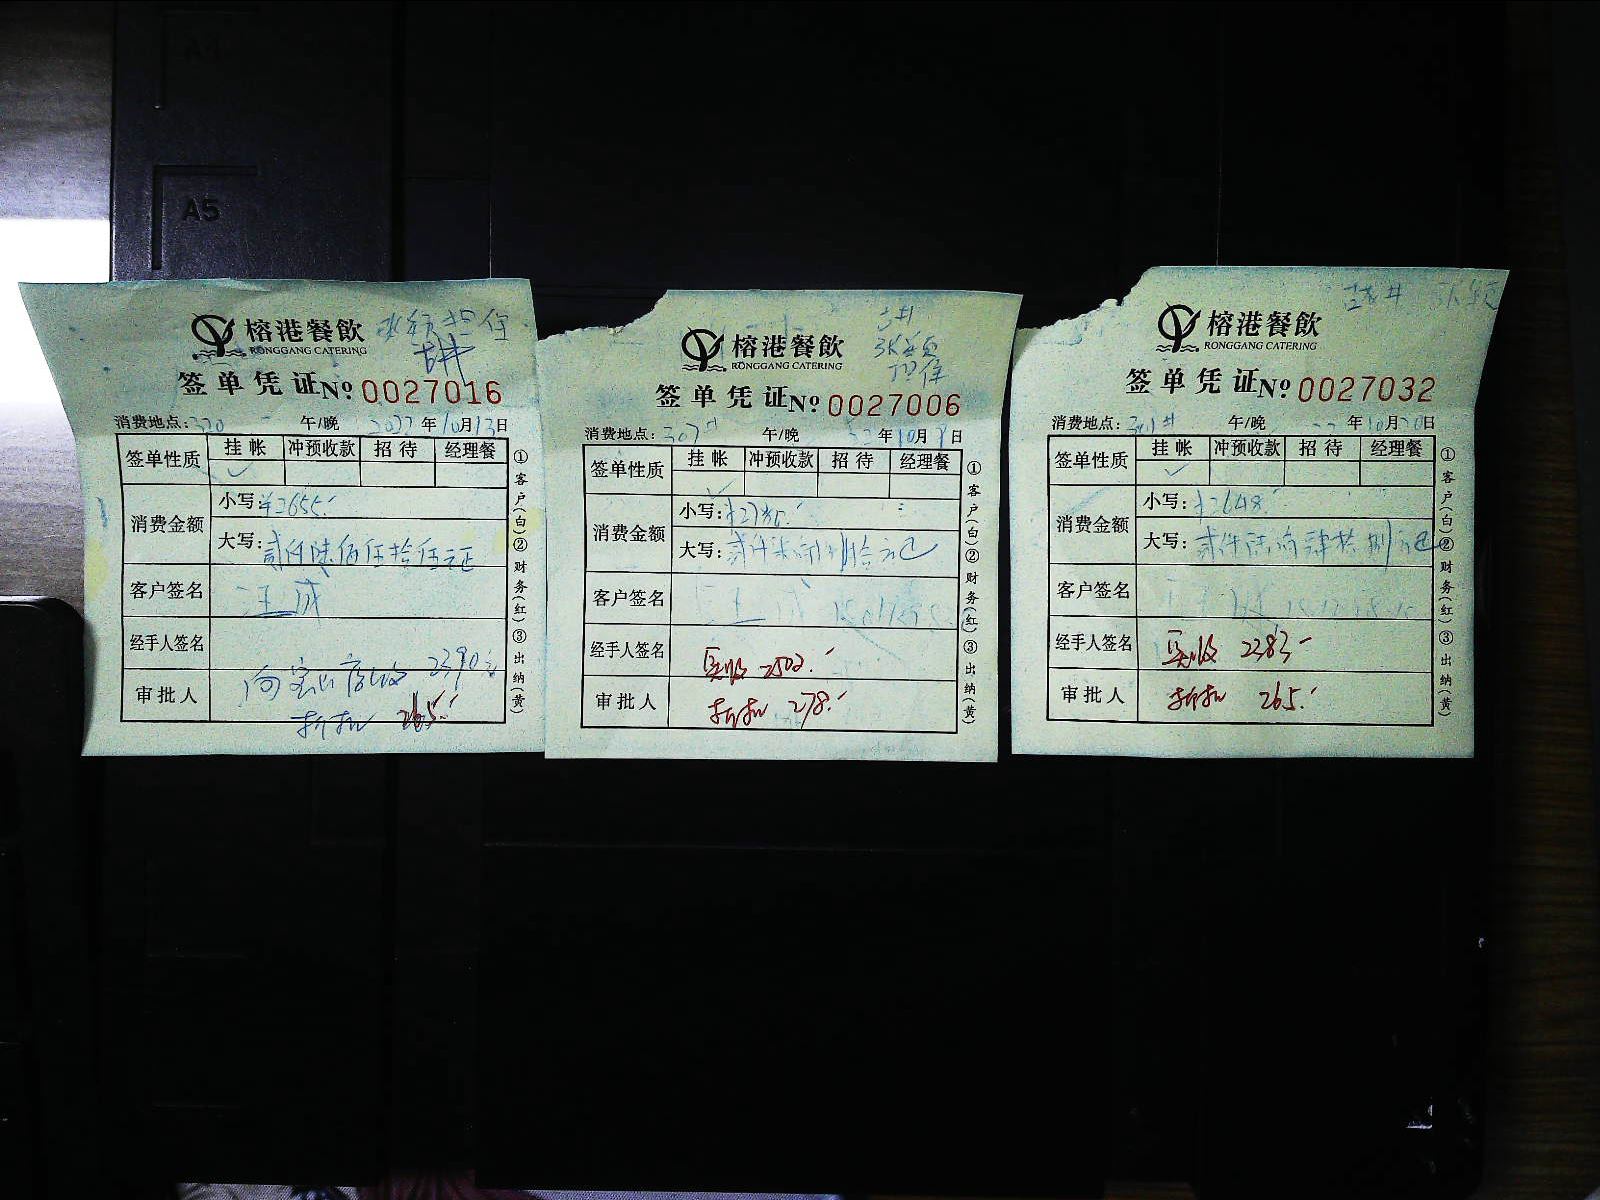 A5
榕港餐飲
RONGGANG CATERING
签单凭证 No 0027016
消费地点: 320 午/晚 2022年10月13日
签单性质 挂帐 冲预收款 招待 经理餐
✓
消费金额 小写: ¥2655.-
大写: 贰仟陆佰伍拾伍元正
客户签名 汪成
经手人签名
审批人
2390元
折扣 265.-
①客户(白)②财务(红)③出纳(黄)
榕港餐飲
张总
担保
RONGGANG CATERING
签单凭证 No 0027006
消费地点: 307# 午/晚 22年10月9日
签单性质 挂帐 冲预收款 招待 经理餐
✓
消费金额 小写: ¥2780.-
大写: 贰仟柒佰捌拾元正
客户签名
经手人签名 实收 2502.-
审批人 折扣 278.-
①客户(白)②财务(红)③出纳(黄)
榕港餐飲
RONGGANG CATERING
签单凭证 No 0027032
消费地点: 301# 午/晚 22年10月20日
签单性质 挂帐 冲预收款 招待 经理餐
✓
消费金额 小写: ¥2648.-
大写: 贰仟陆佰肆拾捌元正
客户签名
经手人签名 实收 2383.-
审批人 折扣 265.-
①客户(白)②财务(红)③出纳(黄)